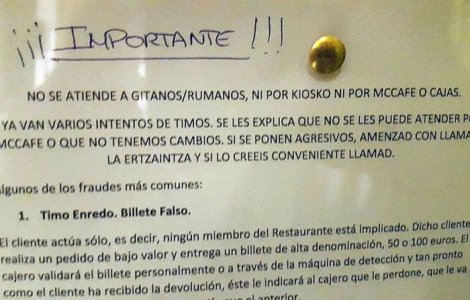 ¡¡¡ IMPORTANTE !!!
NO SE ATIENDE A GITANOS/RUMANOS, NI POR KIOSKO NI POR MCCAFE O CAJAS.
YA VAN VARIOS INTENTOS DE TIMOS. SE LES EXPLICA QUE NO SE LES PUEDE ATENDER PO
MCCAFE O QUE NO TENEMOS CAMBIOS. SI SE PONEN AGRESIVOS, AMENZAD CON LLAMA
LA ERTZAINTZA Y SI LO CREEIS CONVENIENTE LLAMAD.
algunos de los fraudes más comunes:
1. Timo Enredo. Billete Falso.
El cliente actúa sólo, es decir, ningún miembro del Restaurante está implicado. Dicho cliente
realiza un pedido de bajo valor y entrega un billete de alta denominación, 50 o 100 euros. El
cajero validará el billete personalmente o a través de la máquina de detección y tan pronto
como el cliente ha recibido la devolución, éste le indicará al cajero que le perdone, que le va
que el anterior.